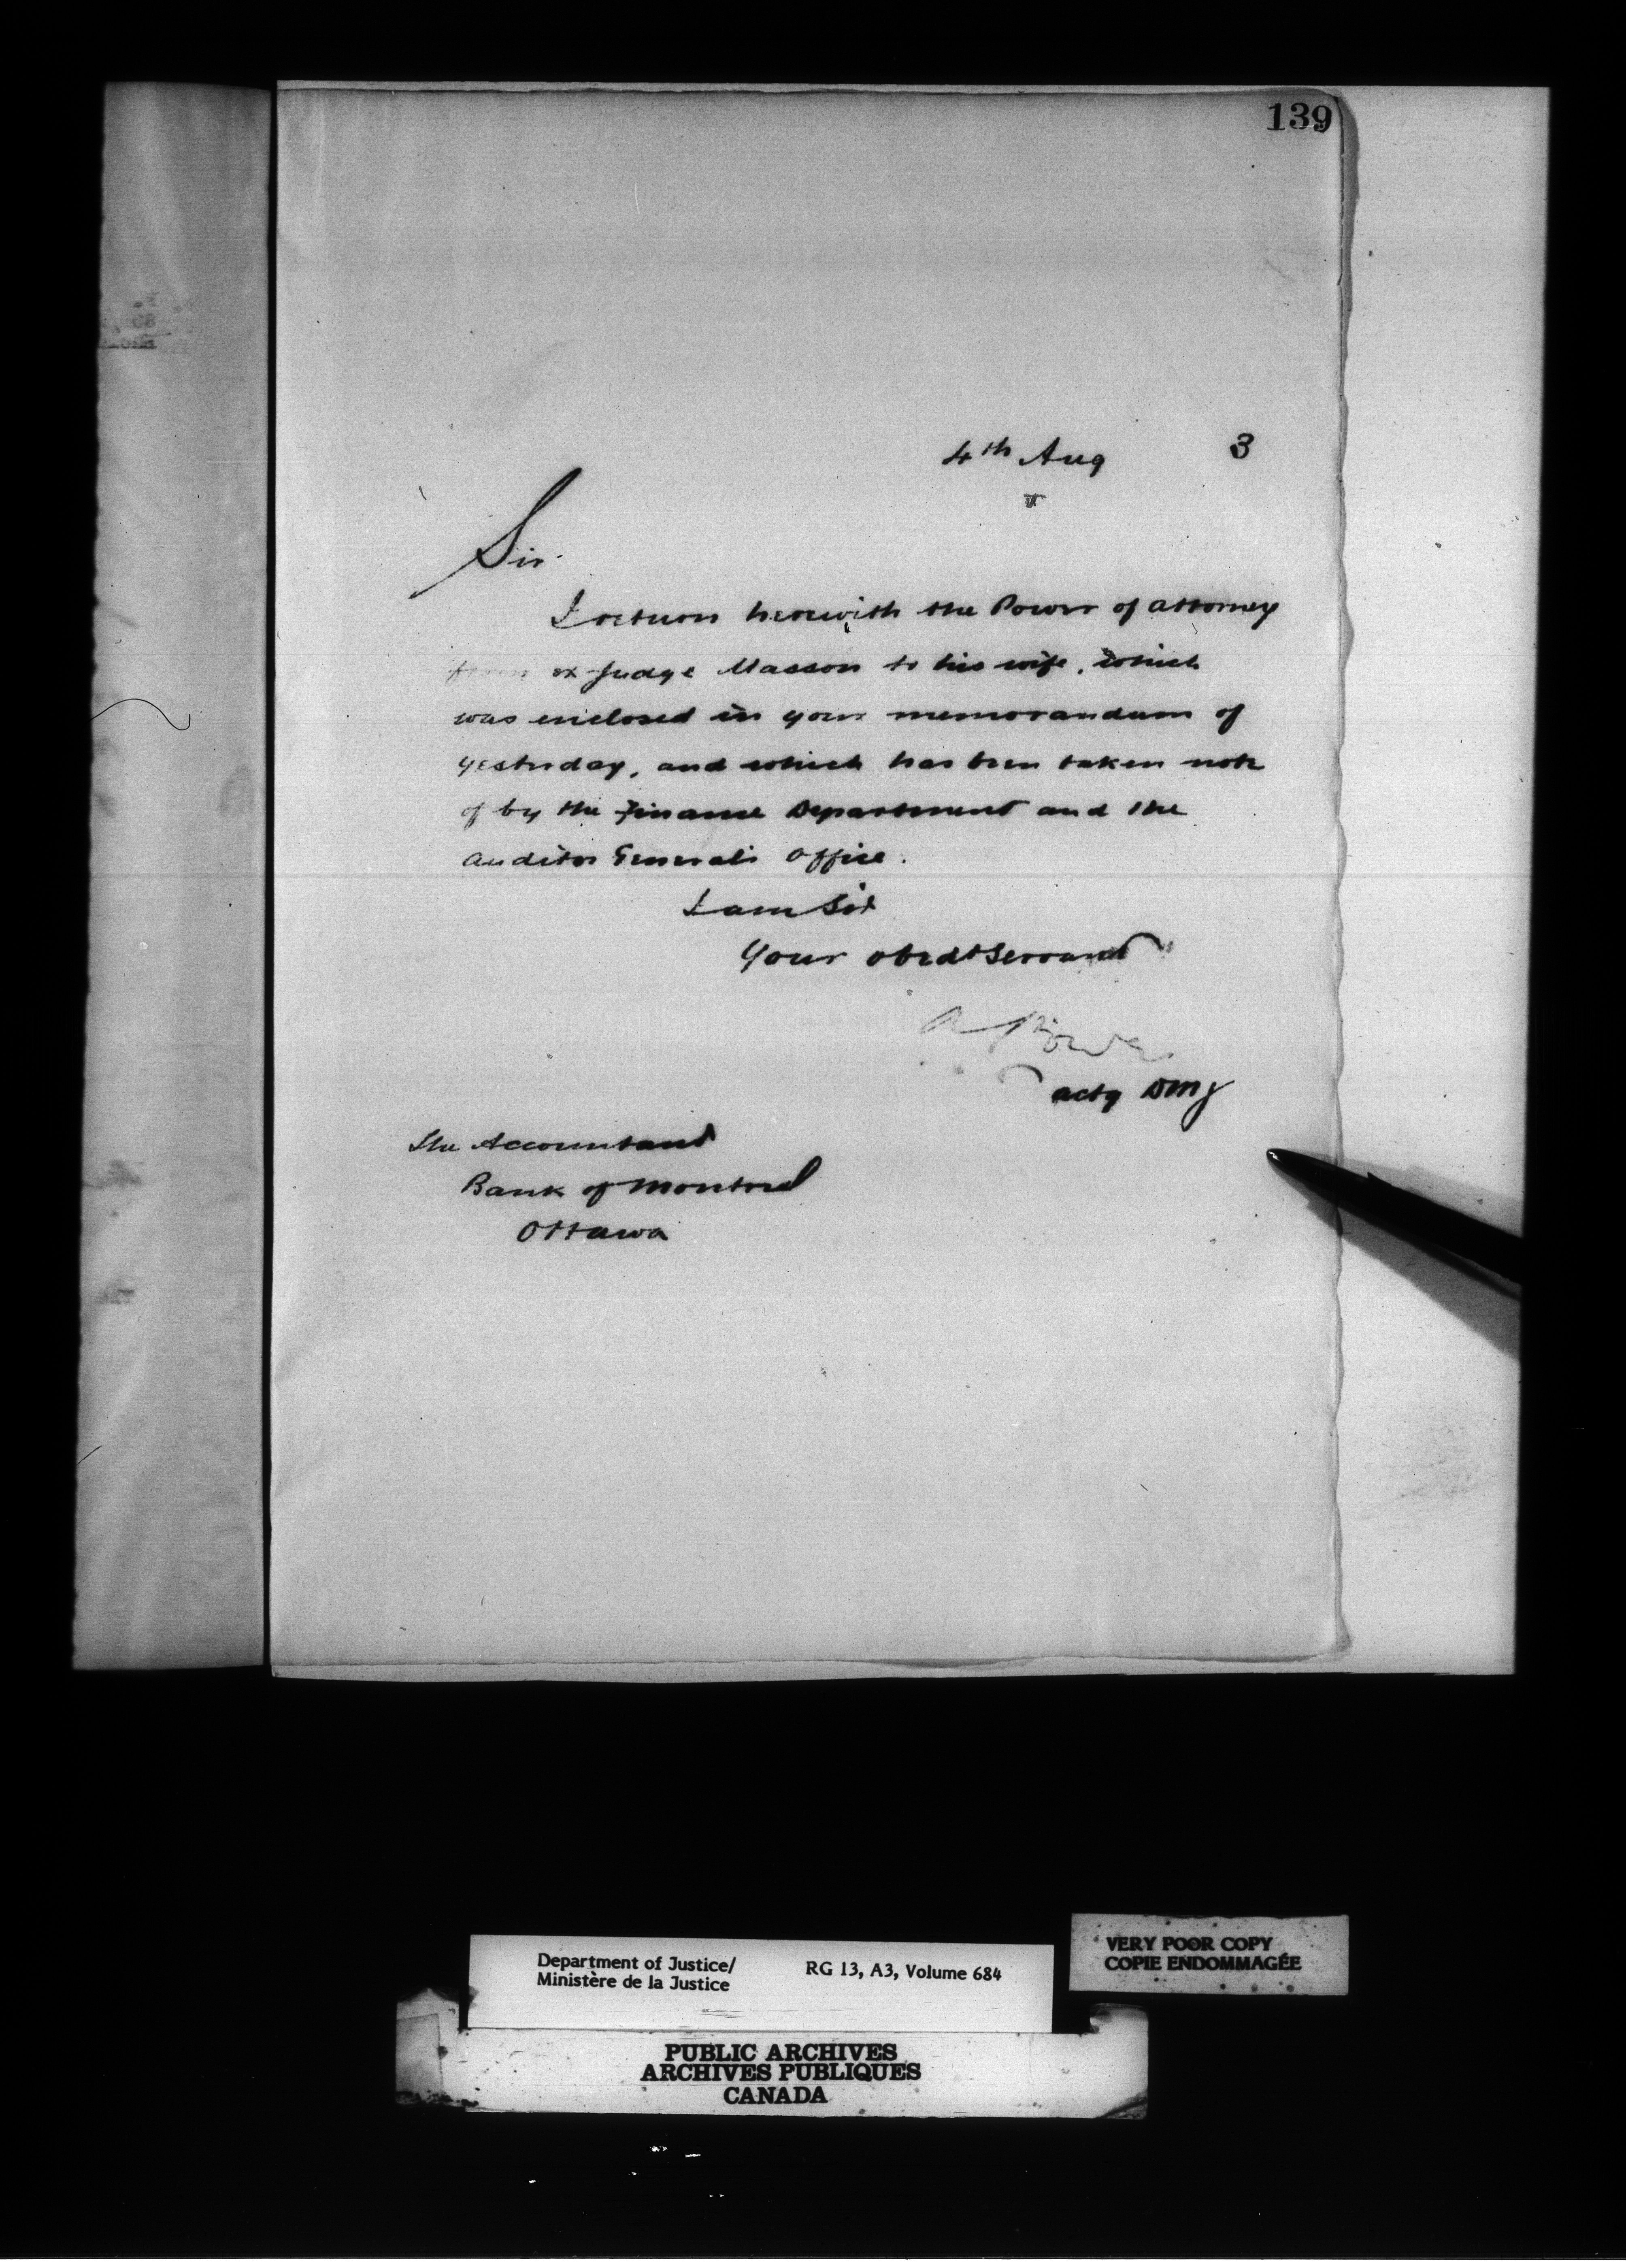 139
4th Aug 3
Sir
I return herewith the Power of attorney
from ex Judge Masson to his wife, which
was enclosed in your memorandum of
yesterday, and which has been taken note
of by the Finance Department and the
Auditor General's Office.
I am Sir
Your obedt Servant
A Power
actg DMJ
The Accountant
Bank of Montreal
Ottawa
Department of Justice/ RG 13, A3, Volume 684
Ministère de la Justice
VERY POOR COPY
COPIE ENDOMMAGÉE
PUBLIC ARCHIVES
ARCHIVES PUBLIQUES
CANADA